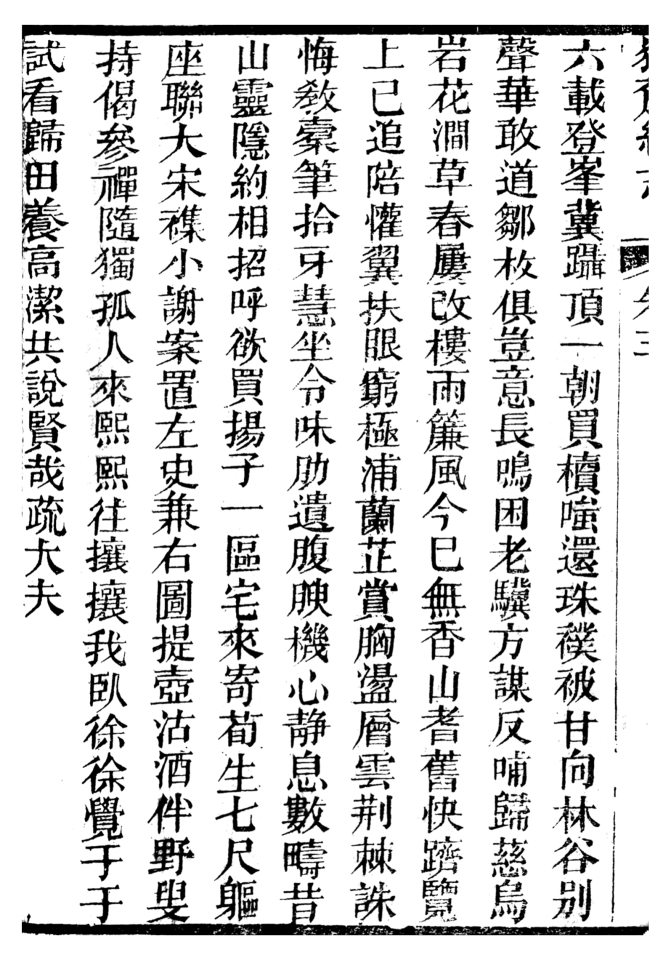 卷三
六載登峯冀躡頂一朝買櫝嗤還珠襆被甘向林谷別
聲華敢道鄒枚俱豈意長鳴困老驥方謀反哺歸慈烏
岩花澗草春屢改樓雨簾風今巳無香山耆舊快躋覽
上巳追陪懽翼扶眼窮極浦蘭芷賞胸盪層雲荆棘誅
悔敎橐筆拾牙慧坐令味肋遺腹腴機心靜息數疇昔
山靈隱約相招呼欲買揚子一區宅來寄荀生七尺軀
座聯大宋襍小謝案置左史兼右圖提壺沽酒伴野叟
持偈參禪隨獨孤人來熙熙往攘攘我臥徐徐覺于于
試看歸田養高潔共說賢哉疏大夫